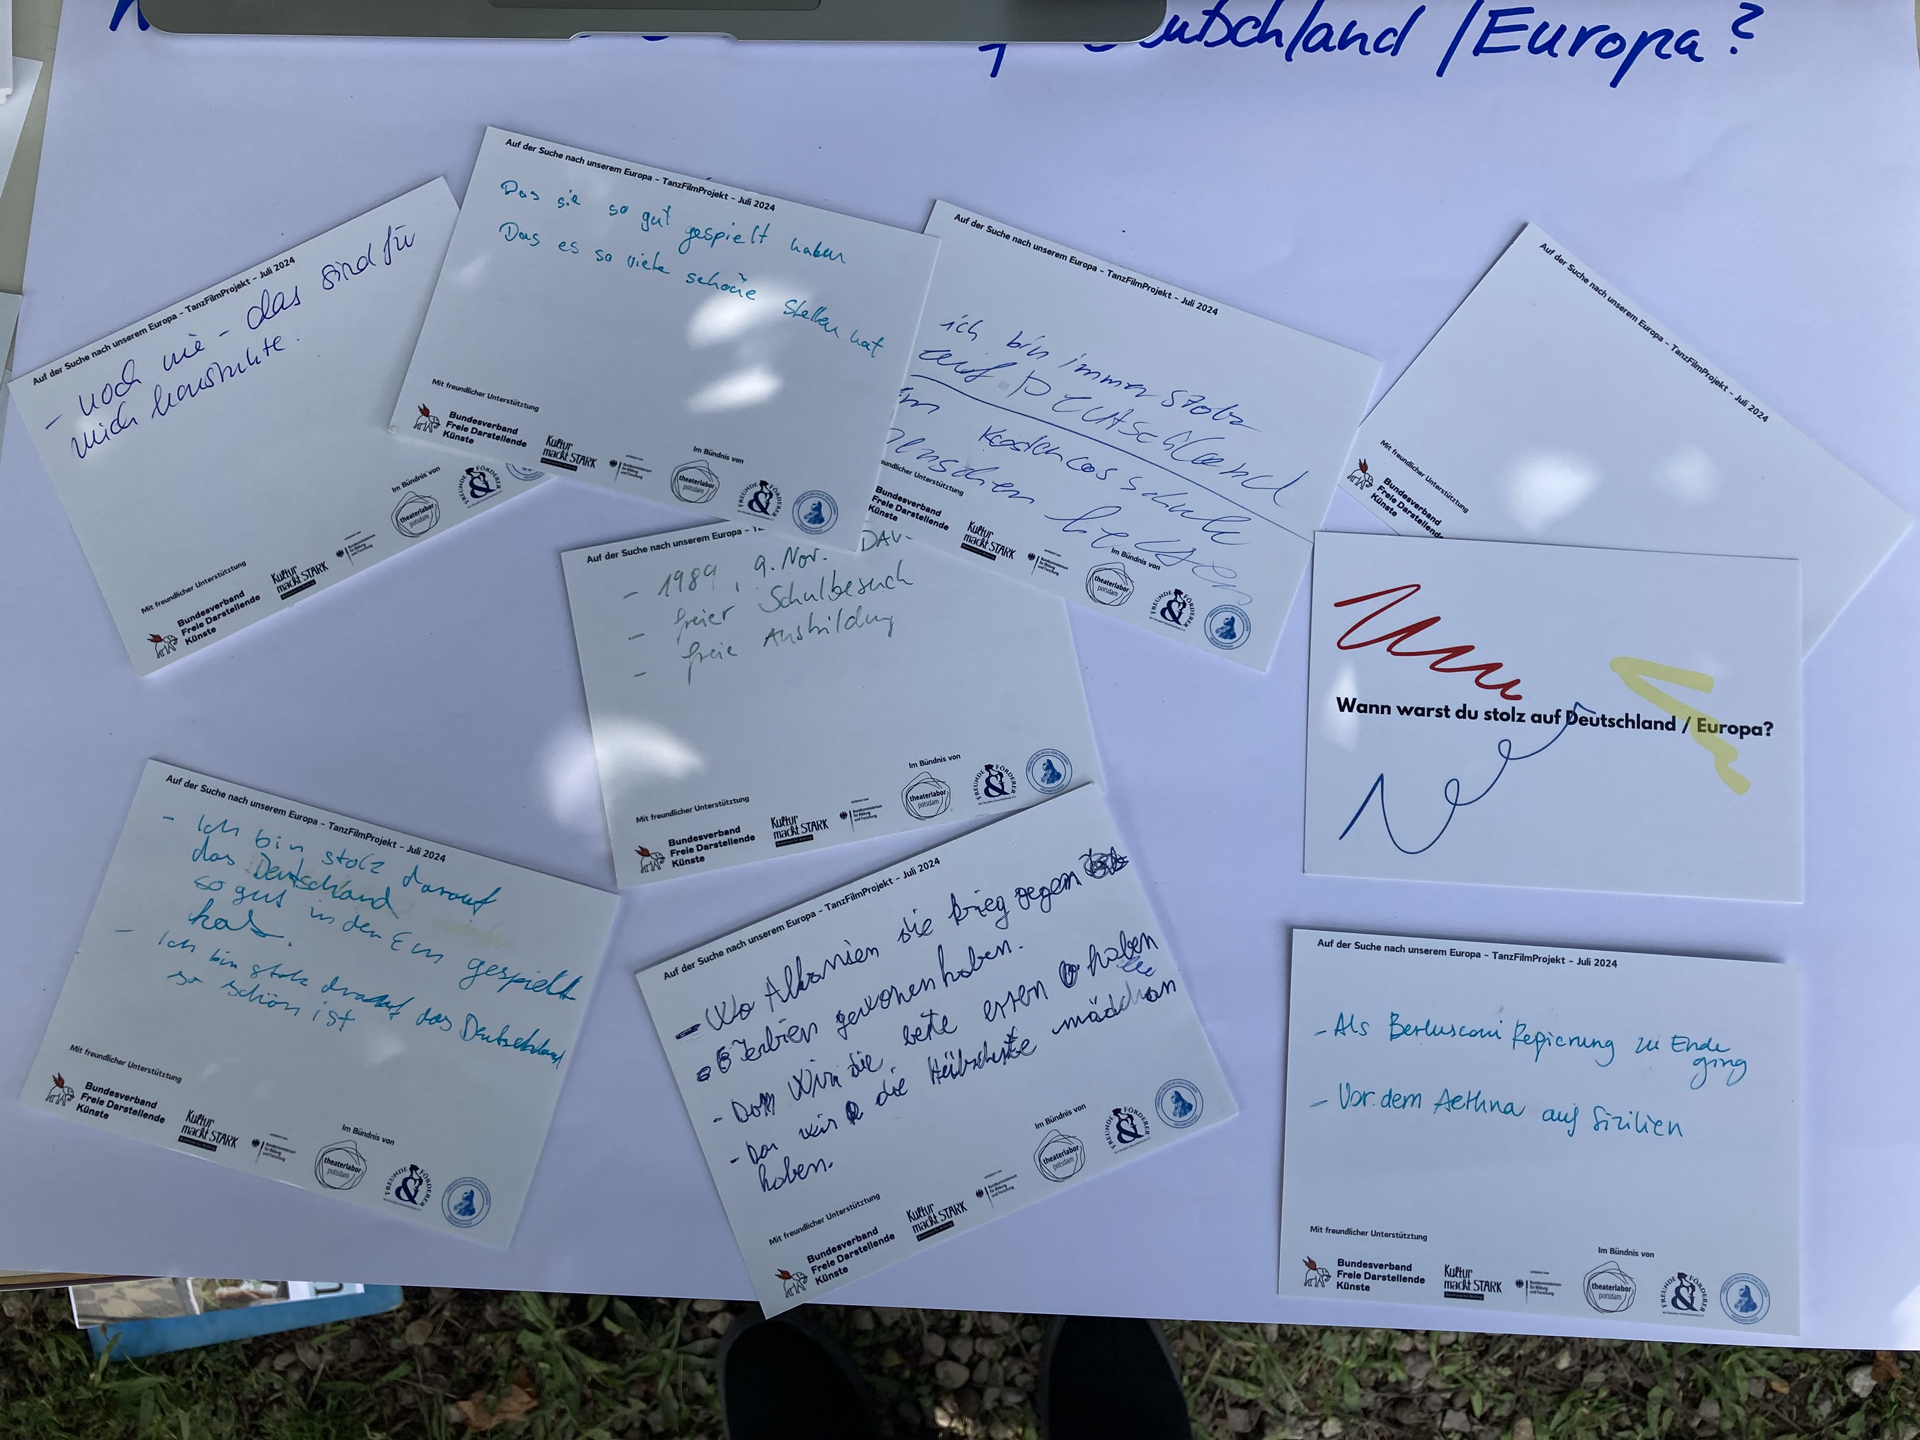 Deutschland / Europa?
Auf der Suche nach unserem Europa – TanzFilmProjekt – Juli 2024
- noch nie - das sind für
mich Konstrukte.
Mit freundlicher Unterstütztung
Bundesverband
Freie Darstellende
Künste
Kultur
macht STARK
Im Bündnis von
theaterlabor
potsdam
FREUNDE & FÖRDERER
Auf der Suche nach unserem Europa – TanzFilmProjekt – Juli 2024
Das sie so gut gespielt haben
Das es so viele schöne Stellen hat
Mit freundlicher Unterstütztung
Bundesverband
Freie Darstellende
Künste
Kultur
macht STARK
Im Bündnis von
theaterlabor
potsdam
FREUNDE & FÖRDERER
Auf der Suche nach unserem Europa – TanzFilmProjekt – Juli 2024
ich bin immer stolz
auf Deutschland
kostenlos schule
Menschen
freundlicher Unterstütztung
Bundesverband
Freie Darstellende
Künste
Kultur
macht STARK
Im Bündnis von
theaterlabor
potsdam
FREUNDE & FÖRDERER
Auf der Suche nach unserem Europa – TanzFilmProjekt – Juli 2024
Mit freundlicher Unterstütztung
Bundesverband
Freie Darstellende
Künste
Auf der Suche nach unserem Europa –
- 1989, 9. Nov.
- freier Schulbesuch
- freie Ausbildung
Mit freundlicher Unterstütztung
Bundesverband
Freie Darstellende
Künste
Kultur
macht STARK
Im Bündnis von
theaterlabor
potsdam
FREUNDE & FÖRDERER
Wann warst du stolz auf Deutschland / Europa?
Auf der Suche nach unserem Europa – TanzFilmProjekt – Juli 2024
- Ich bin stolz darauf
das Deutschland
so gut in den Em gespielt
hat.
- Ich bin stolz drauf das Deutschland
so schön ist
Mit freundlicher Unterstütztung
Bundesverband
Freie Darstellende
Künste
Kultur
macht STARK
Im Bündnis von
theaterlabor
potsdam
FREUNDE & FÖRDERER
Auf der Suche nach unserem Europa – TanzFilmProjekt – Juli 2024
- Wo Albanien die krieg gegen
Serbien gewonen haben.
- Dass Wir die beste essen haben
- Das wir die Hübscheste mädchen
haben.
Mit freundlicher Unterstütztung
Bundesverband
Freie Darstellende
Künste
Kultur
macht STARK
Im Bündnis von
theaterlabor
potsdam
FREUNDE & FÖRDERER
Auf der Suche nach unserem Europa – TanzFilmProjekt – Juli 2024
- Als Berlusconi Regierung zu Ende
ging
- Vor dem Aethna auf Sizilien
Mit freundlicher Unterstütztung
Bundesverband
Freie Darstellende
Künste
Kultur
macht STARK
Im Bündnis von
theaterlabor
potsdam
FREUNDE & FÖRDERER